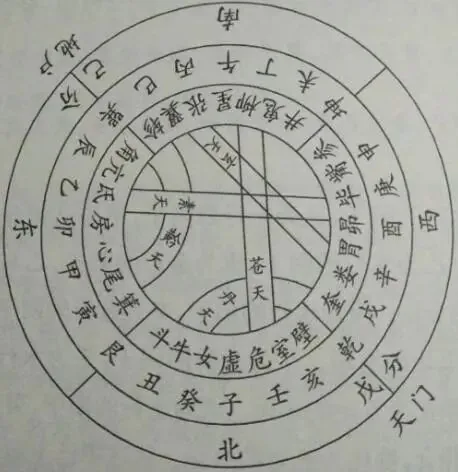 南
西
北
东
地户
己分
天门
戊分
巽巳丙午丁未坤申庚酉辛戌乾亥壬子癸丑艮寅甲卯乙辰
角亢氐房心尾箕
斗牛女虚危室壁
奎娄胃昴毕觜参
井鬼柳星张翼轸
玄天
素天
黅天
苍天
丹天